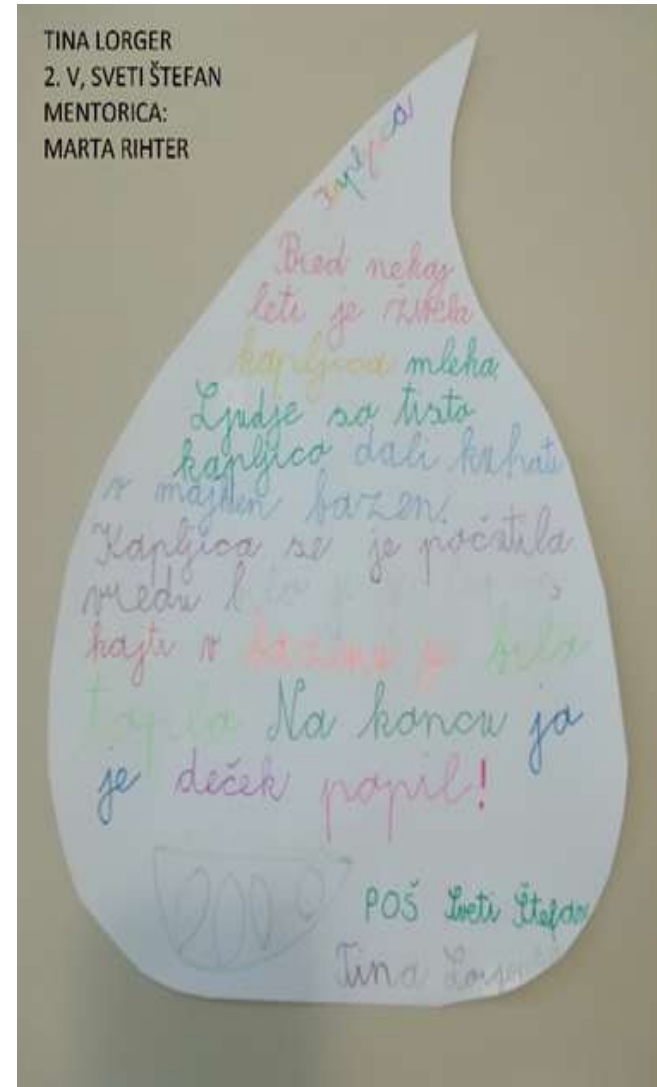 TINA LORGER
2. V, SVETI ŠTEFAN
MENTORICA:
MARTA RIHTER
Kapljica
Pred nekaj
leti je živela
kapljica mleka.
Ljudje so tisto
kapljico dali kuhati
v majhen bazen.
Kapljica se je počutila
vredu
kajti v bazenu je bila
topla Na koncu jo
je deček popil!
200
POŠ Sveti Štefan
Tina Lorger